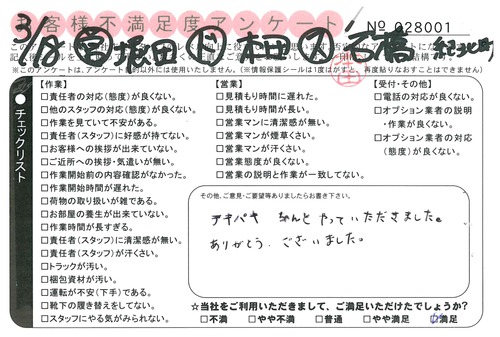 お客様不満足度アンケート
№ 028001
3/8 営 堀田 本田
(※このアンケートは、アンケート目的以外には使用いたしません。)(※情報保護シールは1度はがすと、再度貼りなおすことはできません)
●チェックリスト
【作業】
□責任者の対応(態度)が良くない。
□他のスタッフの対応(態度)が良くない。
□作業を見ていて不安がある。
□責任者(スタッフ)に好感が持てない。
□お客様への挨拶が出来ていない。
□ご近所への挨拶・気遣いが無い。
□作業開始前の内容確認がなかった。
□作業開始時間が遅れた。
□荷物の取り扱いが雑である。
□お部屋の養生が出来ていない。
□作業時間が長すぎる。
□責任者(スタッフ)に清潔感が無い。
□責任者(スタッフ)が汗くさい。
□トラックが汚い。
□梱包資材が汚い。
□運転が不安(下手)である。
□靴下の履き替えをしてない。
□スタッフにやる気がみられない。
【営業】
□見積もり時間に遅れた。
□見積もり時間が長い。
□営業マンに清潔感が無い。
□営業マンが煙草くさい。
□営業マンが汗くさい。
□営業態度が良くない。
□営業の説明と作業が一致してない。
【受付・その他】
□電話の対応が良くない。
□オプション業者の説明
・作業が良くない。
□オプション業者の対応
(態度)が良くない。
その他、ご意見・ご要望等ありましたらお書き下さい。
テキパキ やっていただきました。
ありがとう ございました。
☆当社をご利用いただきまして、ご満足いただけたでしょうか?
□不満 □やや不満 □普通 □やや満足 ☑満足